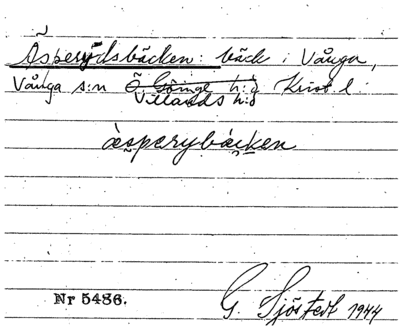 Äsperydsbäcken: bäck i Vånga,
Vånga s:n Ö Göinge h:d Krist. l.
Villands h:d
äsperybäcken
Nr 5486.
G. Sjöstedt 1944